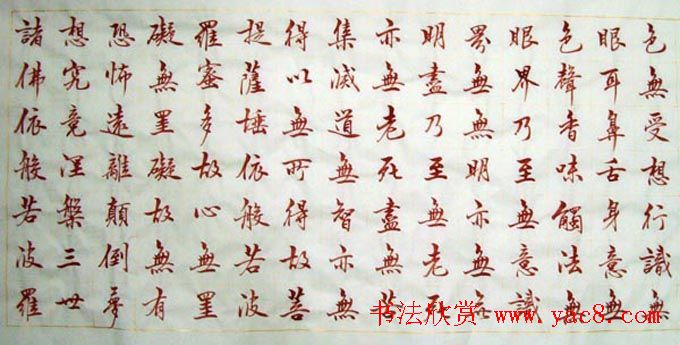 色無受想行識無
眼耳鼻舌身意無
色聲香味觸法無
眼界乃至無意識
界無無明亦無無
明盡乃至無老死
亦無老死盡無苦
集滅道無智亦無
得以無所得故菩
提薩埵依般若波
羅蜜多故心無罣
礙無罣礙故無有
恐怖遠離顛倒夢
想究竟涅槃三世
諸佛依般若波羅
书法欣赏 www.yac8.com